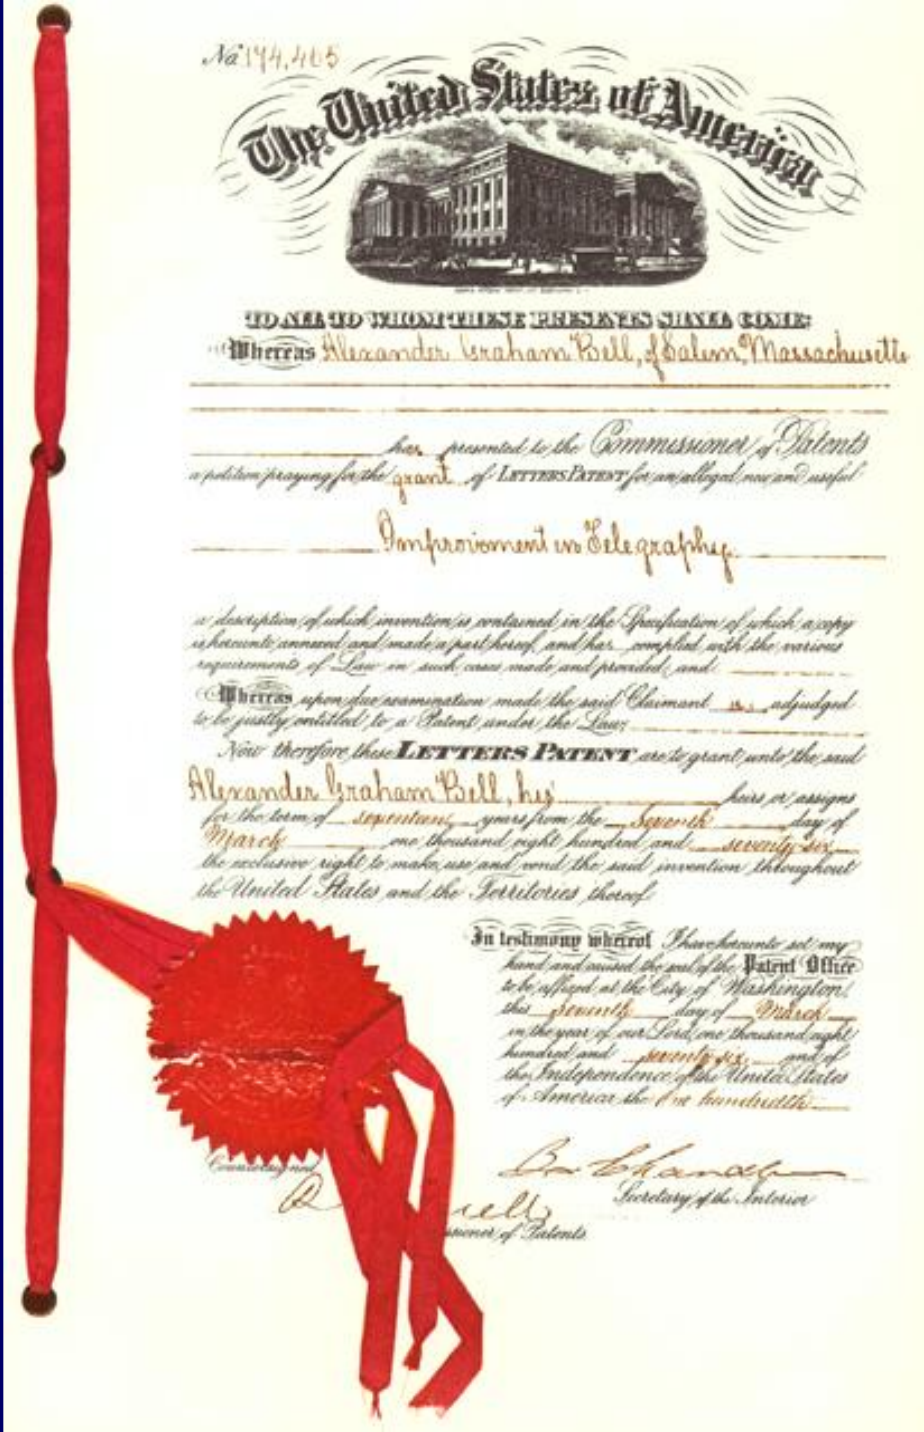 No. 174,465
The United States of America
TO ALL TO WHOM THESE PRESENTS SHALL COME:
Whereas Alexander Graham Bell, of Salem, Massachusetts
has presented to the Commissioner of Patents
a petition praying for the grant of LETTERS PATENT for an alleged new and useful
Improvement in Telegraphy.
a description of which invention is contained in the Specification of which a copy
is hereunto annexed and made a part hereof, and has complied with the various
requirements of Law in such cases made and provided, and
Whereas upon due examination made the said Claimant is adjudged
to be justly entitled to a Patent under the Law;
Now therefore these LETTERS PATENT are to grant unto the said
Alexander Graham Bell, his heirs or assigns
for the term of seventeen years from the seventh day of
March one thousand eight hundred and seventy-six
the exclusive right to make, use and vend the said invention throughout
the United States and the Territories thereof
In testimony whereof I have hereunto set my
hand and caused the seal of the Patent Office
to be affixed at the City of Washington
this seventh day of March
in the year of our Lord one thousand eight
hundred and seventy-six and of
the Independence of the United States
of America the one hundredth
Countersigned
Secretary of the Interior
of Patents